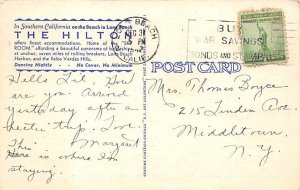 In Southern California on the Beach in Long Beach
THE HILTON
offers finest accommodations. Home of the
ROOM", affording a beautiful panorama of
anchorage, seven miles of rolling breakers, Long Beach
Harbor, and the Palos Verdes Hills.
Dancing Nightly - No Cover, No Minimum
BEACH
CALIF.
BUY
WAR SAVINGS
BONDS AND STAMPS
POST CARD
Hello Lil. How
are you. Arrived
yesterday after a
trip. Love,
This Margaret
here is where I'm
staying.
Mrs. Thomas Boyce
215 Linden Ave.
Middletown,
N.Y.